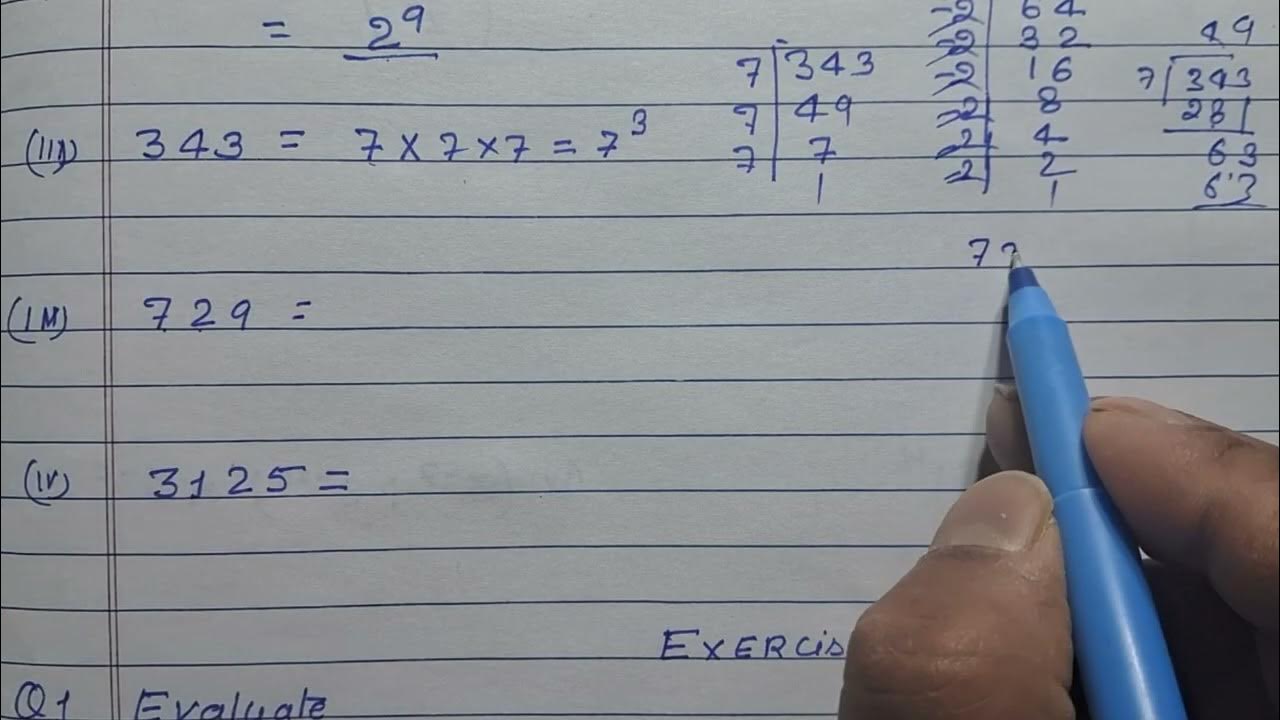 = 2⁹
2 | 64
2 | 32
2 | 16
2 | 8
2 | 4
2 | 2
1
7 | 343
7 | 49
7 | 7
1
49
7 | 343
28
63
63
(III) 343 = 7 × 7 × 7 = 7³
7
729 =
(IV) 3125 =
EXERCIS
Q1 Evaluate